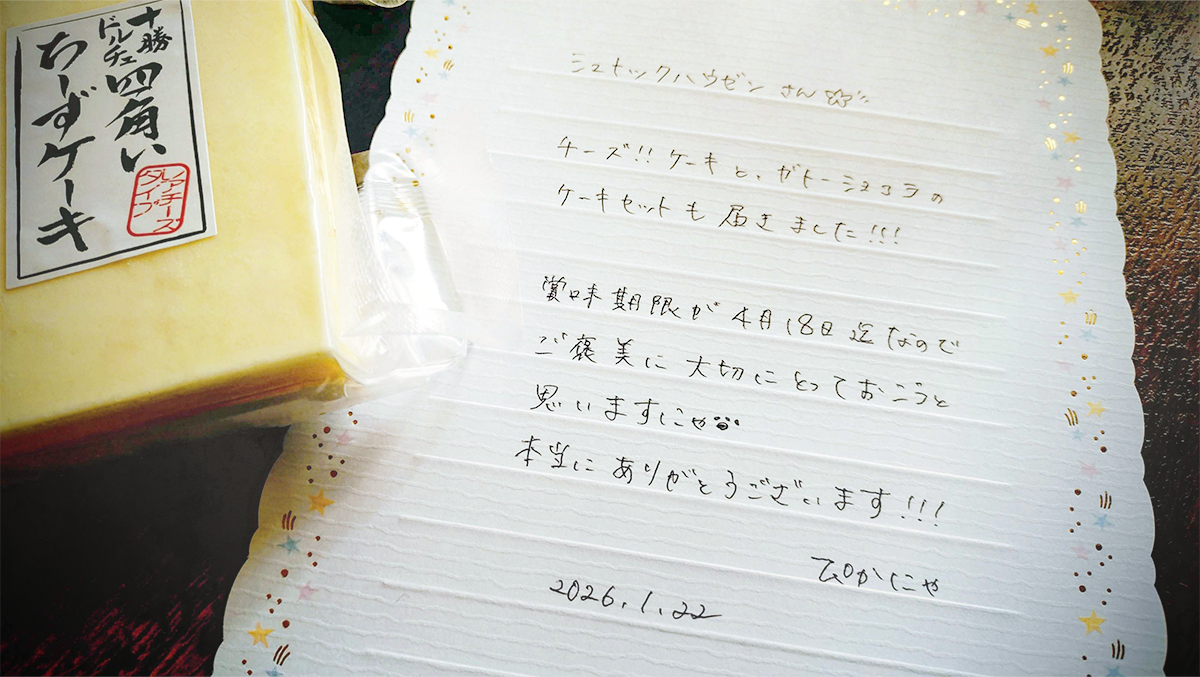 十勝
ドルチェ
四角い
ちーずケーキ
レアチーズ
タイプ
シュナックハウゼンさん
チーズ!!ケーキと、ガトーショコラの
ケーキセットも届きました!!!
賞味期限が4月18日迄なので
ご褒美に大切にとっておこうと
思いますにゃ
本当にありがとうございます!!!
ぴかにゃ
2026.1.22